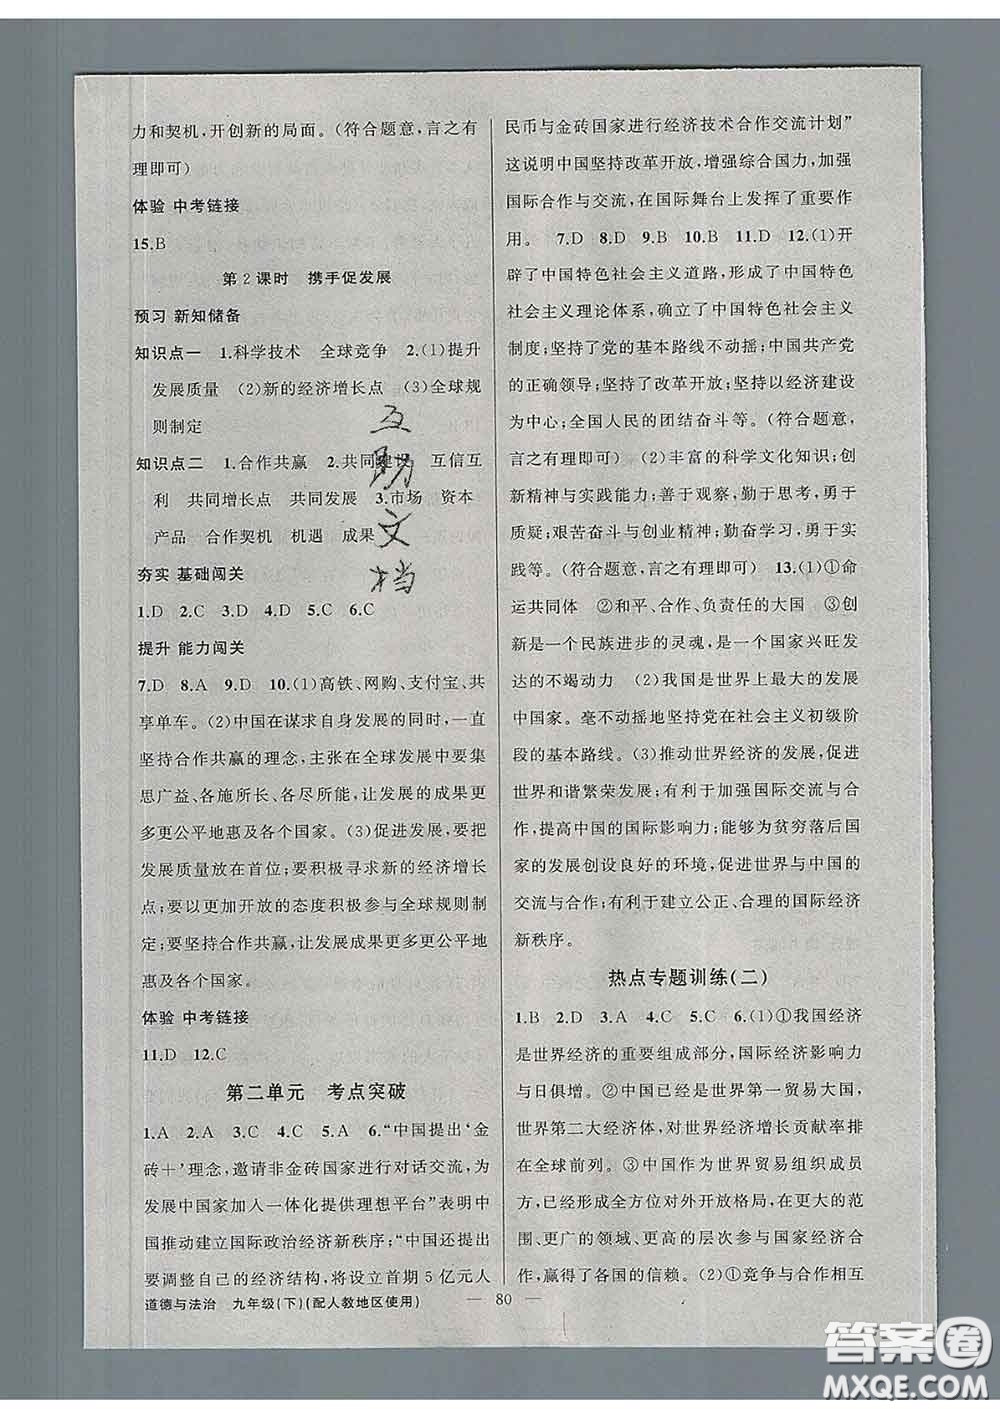 力和契机,开创新的局面。(符合题意,言之有
理即可)
体验 中考链接
15.B
第2课时 携手促发展
预习 新知储备
知识点一 1.科学技术 全球竞争 2.(1)提升
发展质量 (2)新的经济增长点 (3)全球规
则制定
知识点二 1.合作共赢 2.共同建设 互信互
利 共同增长点 共同发展 3.市场 资本
产品 合作契机 机遇 成果
夯实 基础闯关
1.D 2.C 3.D 4.D 5.C 6.C
提升 能力闯关
7.D 8.A 9.D 10.(1)高铁、网购、支付宝、共
享单车。(2)中国在谋求自身发展的同时,一直
坚持合作共赢的理念,主张在全球发展中要集
思广益、各施所长、各尽所能,让发展的成果更
多更公平地惠及各个国家。(3)促进发展,要把
发展质量放在首位;要积极寻求新的经济增长
点;要以更加开放的态度积极参与全球规则制
定;要坚持合作共赢,让发展成果更多更公平地
惠及各个国家。
体验 中考链接
11.D 12.C
第二单元 考点突破
1.A 2.A 3.C 4.C 5.A 6.“中国提出‘金
砖+’理念,邀请非金砖国家进行对话交流,为
发展中国家加入一体化提供理想平台”表明中
国推动建立国际政治经济新秩序;“中国还提出
要调整自己的经济结构,将设立首期5亿元人
民币与金砖国家进行经济技术合作交流计划”
这说明中国坚持改革开放,增强综合国力,加强
国际合作与交流,在国际舞台上发挥了重要作
用。 7.D 8.D 9.B 10.B 11.D 12.(1)开
辟了中国特色社会主义道路,形成了中国特色
社会主义理论体系,确立了中国特色社会主义
制度;坚持了党的基本路线不动摇;中国共产党
的正确领导;坚持了改革开放;坚持以经济建设
为中心;全国人民的团结奋斗等。(符合题意,
言之有理即可) (2)丰富的科学文化知识;创
新精神与实践能力;善于观察,勤于思考,勇于
质疑;艰苦奋斗与创业精神;勤奋学习,勇于实
践等。(符合题意,言之有理即可) 13.(1)①命
运共同体 ②和平、合作、负责任的大国 ③创
新是一个民族进步的灵魂,是一个国家兴旺发
达的不竭动力 (2)我国是世界上最大的发展
中国家。毫不动摇地坚持党在社会主义初级阶
段的基本路线。(3)推动世界经济的发展,促进
世界和谐繁荣发展;有利于加强国际交流与合
作,提高中国的国际影响力;能够为贫穷落后国
家的发展创设良好的环境,促进世界与中国的
交流与合作;有利于建立公正、合理的国际经济
新秩序。
热点专题训练(二)
1.B 2.D 3.A 4.C 5.C 6.(1)①我国经济
是世界经济的重要组成部分,国际经济影响力
与日俱增。②中国已经是世界第一贸易大国,
世界第二大经济体,对世界经济增长贡献率排
在全球前列。③中国作为世界贸易组织成员
方,已经形成全方位对外开放格局,在更大的范
围、更广的领域、更高的层次参与国家经济合
作,赢得了各国的信赖。(2)①竞争与合作相互
道德与法治 九年级(下)(配人教地区使用)
— 80 —
互
助
文
档
答案圈
MXQE.COM